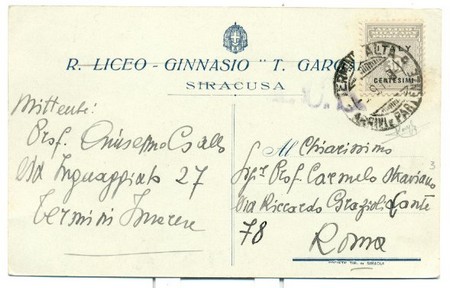 R. LICEO - GINNASIO "T. GARG
SIRACUSA
CENTESIMI
ARRIVI E PARTENZE
Mittente:
Prof. Giuseppe
Via Inguaggiato 27
Termini Imerese
Al Chiarissimo
Sig. Prof. Carmelo
Via Riccardo Grazioli Lante
78
Roma